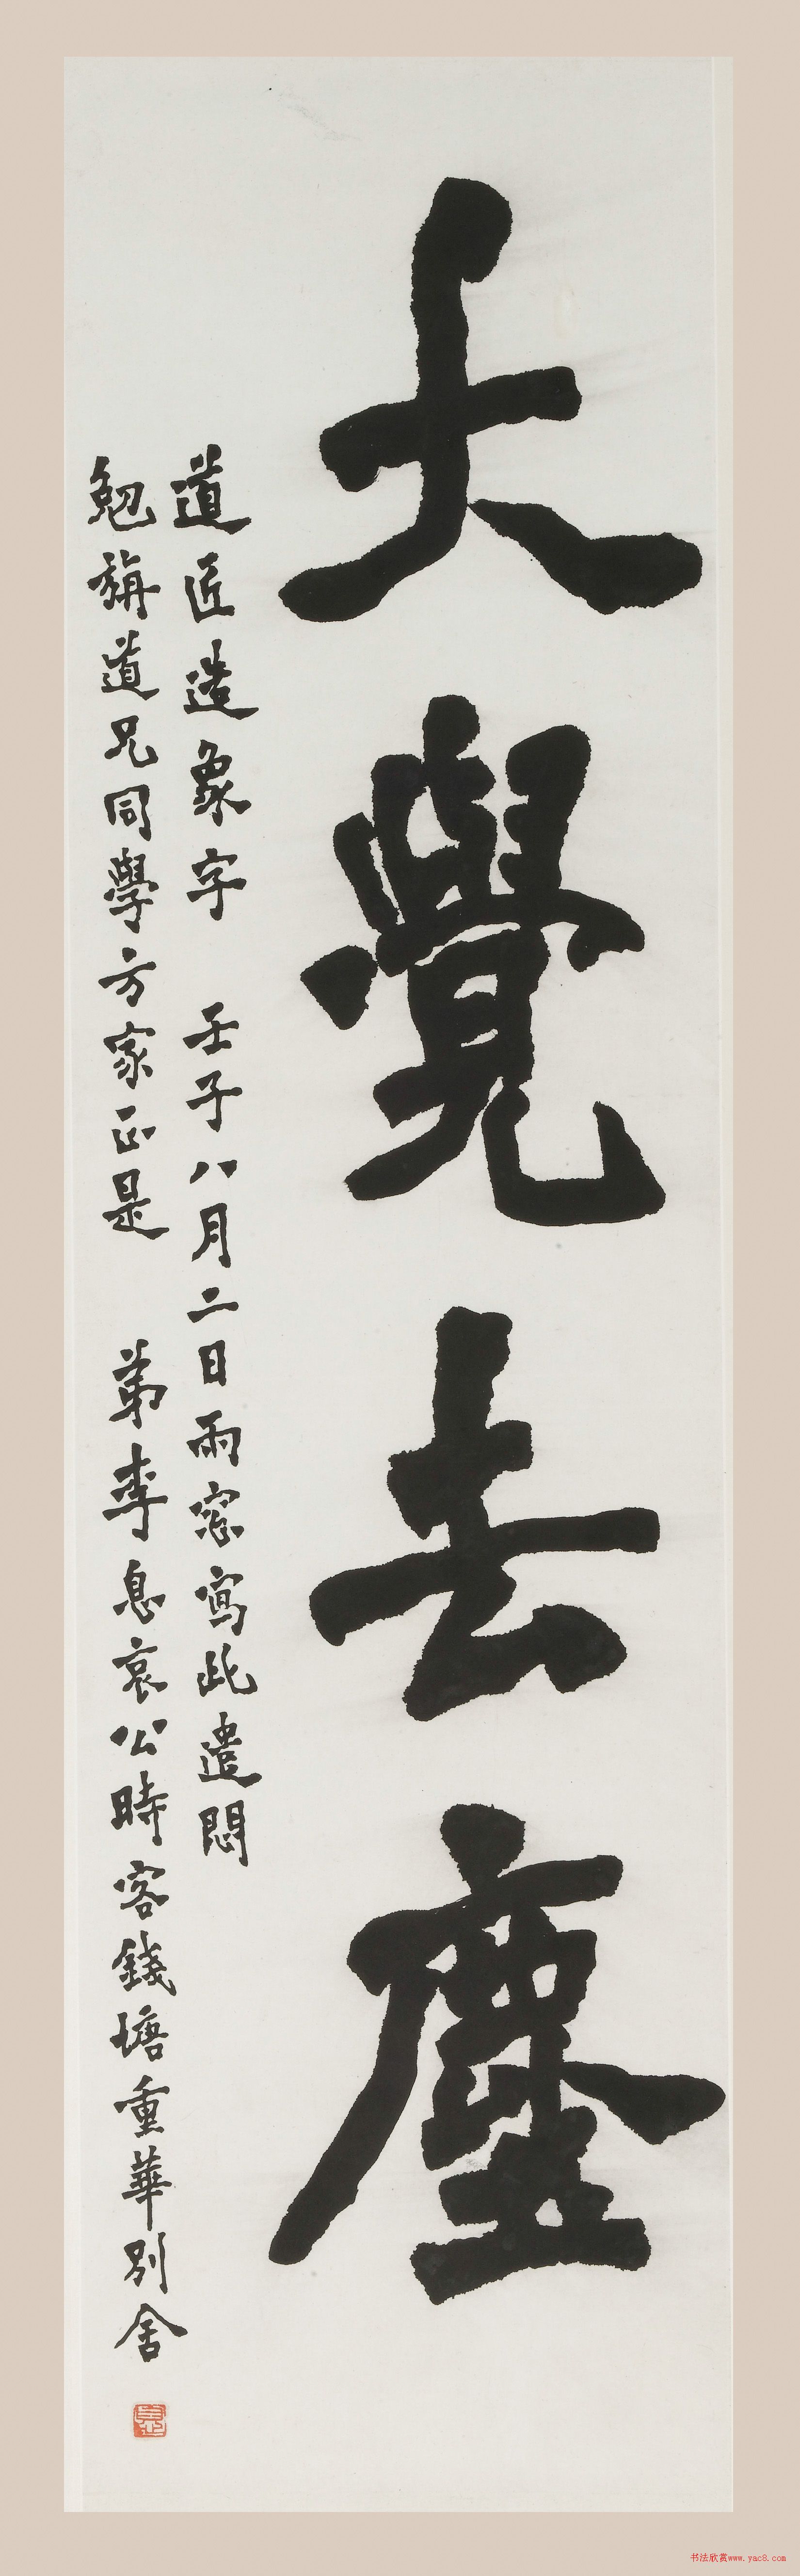 大覺去塵
道匠造象字 壬子八月二日雨窓寫此遣悶
勉旃道兄同學方家正是 弟李息哀公時客錢塘重華別舍
书法欣赏www.yac8.com